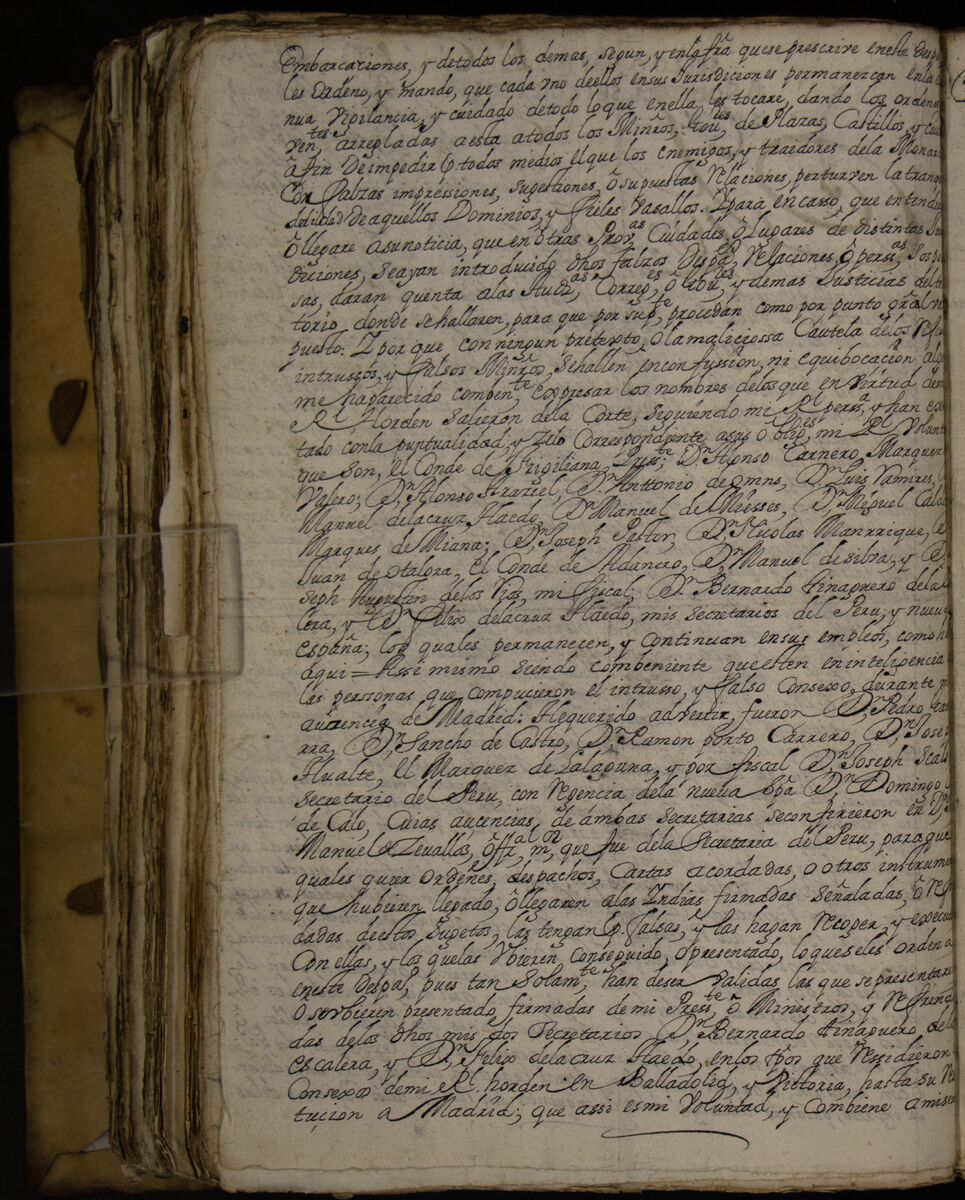 Embarcaciones, y de todos los demas, segun, y en la frã que se prescrive en este Desp
les ordeno, y mando, que cada vno de ellos en sus Jurisdiciones permanezcan en la
nua vigilancia, y cuidado de todo lo que en ella les tocare, dando los ordenes
ventes arregladas a esta a todos los Minros, Goures de Plazas, Castillos, y
â fin de impedir p todos medios el que los enemigos, y traidores de la Monar
Con falzas impressiones, sugestiones, ô supuestas Relaciones, perturven la tranq
de aquellos Dominios, y fieles Vasallos. Y para en casso, que entend
ô llegare a su noticia, que en ôtras Provas Cuidades, ô Lugares de distintas Ju
diciones, se ayan introducido dhos falzos Despos, Relaciones, ô persas, Sospe
sas, daran quenta a las Audas, Correxes, ô Goures, y demas Justicias del te
torio donde se hallaren, para que por supte, procedan como por punto gral va
puesto: Y por que con ningun pretexto, ô la maliciossa Cautela de los Refer
intrussos, y falsos Minros, se hallen en confussion, ni equibocacion alg
me ha parecido combente expresar los nombres de los que en virtud de m
Rl Horden salieron de la Corte, siguiendo mi Rl persa, y han exe
tado con la puntualidad, y Zelo Correspondiente a sus ôbliges, mi Rl Volunt
que son, el Conde de Frigiliana, Presste; Dn Alonso Carnero, Marquez
Valero; Dn Alonso Araziel, Dn Anttonio de Omns, Dn Luis Ramires,
Manuel de la cruz Haedo, Dn Manuel de Miesses, Dn Miguel Calde
Marques de Miana; Dn Joseph Pastor, Dn Nicolas Manrrique,
Juan de Otalora, el Conde de Adanero, Dn Manuel de silva, y D
seph Augustin de los Rios, mi fiscal; Dn Bernardo tinaguero de la
lera, y Dn Felix de la cruz Haedo, mis secretarios del Peru, y nueva
españa; los quales permanecen, y Continuan en sus empleos, como h
aqui = Assi mismo siendo combeniente que esten en inteligencia
las personas que compucieron el intrusso, y falso Consexo, durante m
aucencia de Madrid: He querido advertir, fueron Dn Pedro
rra, Dn Sancho de Castro, Dn Ramon porto Carrero, Dn Jose
Hualte, el Marquez de Lalaguna, y por fiscal Dn Joseph
secretario del Peru, con Regencia de la nueva espa Dn Domingo
de Calo, Cuias aucencias, de ambas secretarias se confirieron en Dn
Manuel Zevallos, offal mor, que fue de la Secretaria del Peru, para que
quales quier Ordenes, despachos, Cartas acordadas, o otros instrumen
que hubieren llegado, ô llegaren a las Indias firmadas señaladas, ô Refr
dadas de estos sugetos, las tengan p falsas, y las hagan Recoger, y execu
Con ellas, y los que las Ubieren Conseguido, ô presentado, lo que se les ordena
en este Despo, pues tan Solamte han de ser Validas, las que se presentare
O se ubieren presentado, firmadas de mi Presste, ô Ministros, y Refrend
das de los dhos mis dos Secretarios Dn Bernardo tinaguero, de la
escalera, y Dn Felix de la cruz Haedo, en los tpos que Ressidieron
Consexo de mi Rl horden en Balladolid, y Victoria, hasta su Res
tucion a Madrid; que assi es mi Voluntad, y Combiene a mi se